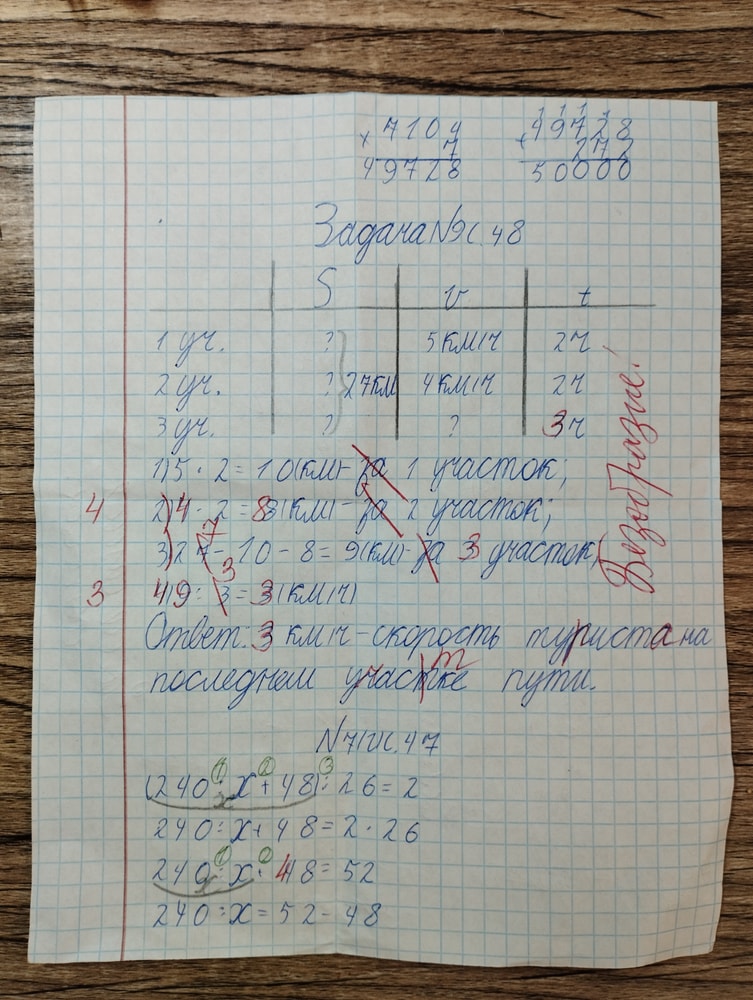 7104 49728
× 7 + 272
49728 50000
Задача N9 с. 48
S v t
1 уч. ? 5 км/ч 2ч
2 уч. ? 27км 4 км/ч 2ч
3 уч. ? ? 3ч
Безобразие!
1) 5 · 2 = 10 (км) - за 1 участок;
4 2) 4 · 2 = 8 (км) - за 2 участок;
3) 27 - 10 - 8 = 9 (км) - за 3 участок;
3 4) 9 : 3 = 3 (км/ч)
Ответ: 3 км/ч - скорость туриста на
последнем участке пути.
N7 с. 47
(240 : x + 48) : 26 = 2
240 : x + 48 = 2 · 26
240 : x + 48 = 52
240 : x = 52 - 48